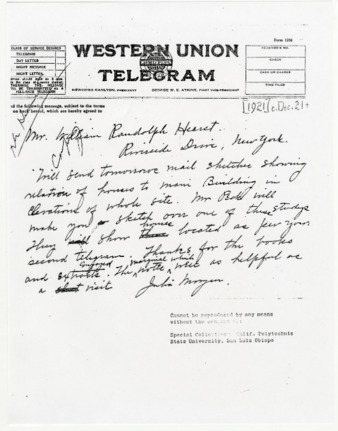 Form 1206
CLASS OF SERVICE DESIRED
TELEGRAM
DAY LETTER
NIGHT MESSAGE
NIGHT LETTER
WESTERN UNION
TELEGRAM
NEWCOMB CARLTON, PRESIDENT
GEORGE W. E. ATKINS, FIRST VICE-PRESIDENT
CHECK
TIME FILED
the following message, subject to the terms
hereof, which are hereby agreed to
[1921/c.Dec.21]
Mr. William Randolph Hearst.
Riverside Drive, New York.
Will send tomorrow mail sketches showing
relation of houses to main Building in
elevations of whole site. Mr will
make you a sketch over one of these studys
They will show house located as per your
second telegram. Thanks for the books
and The marginal notes were as helpful as
a visit
Julia Morgan
Cannot be reproduced by any means
without the
Special Collections, Calif. Polytechnic
State University, San Luis Obispo